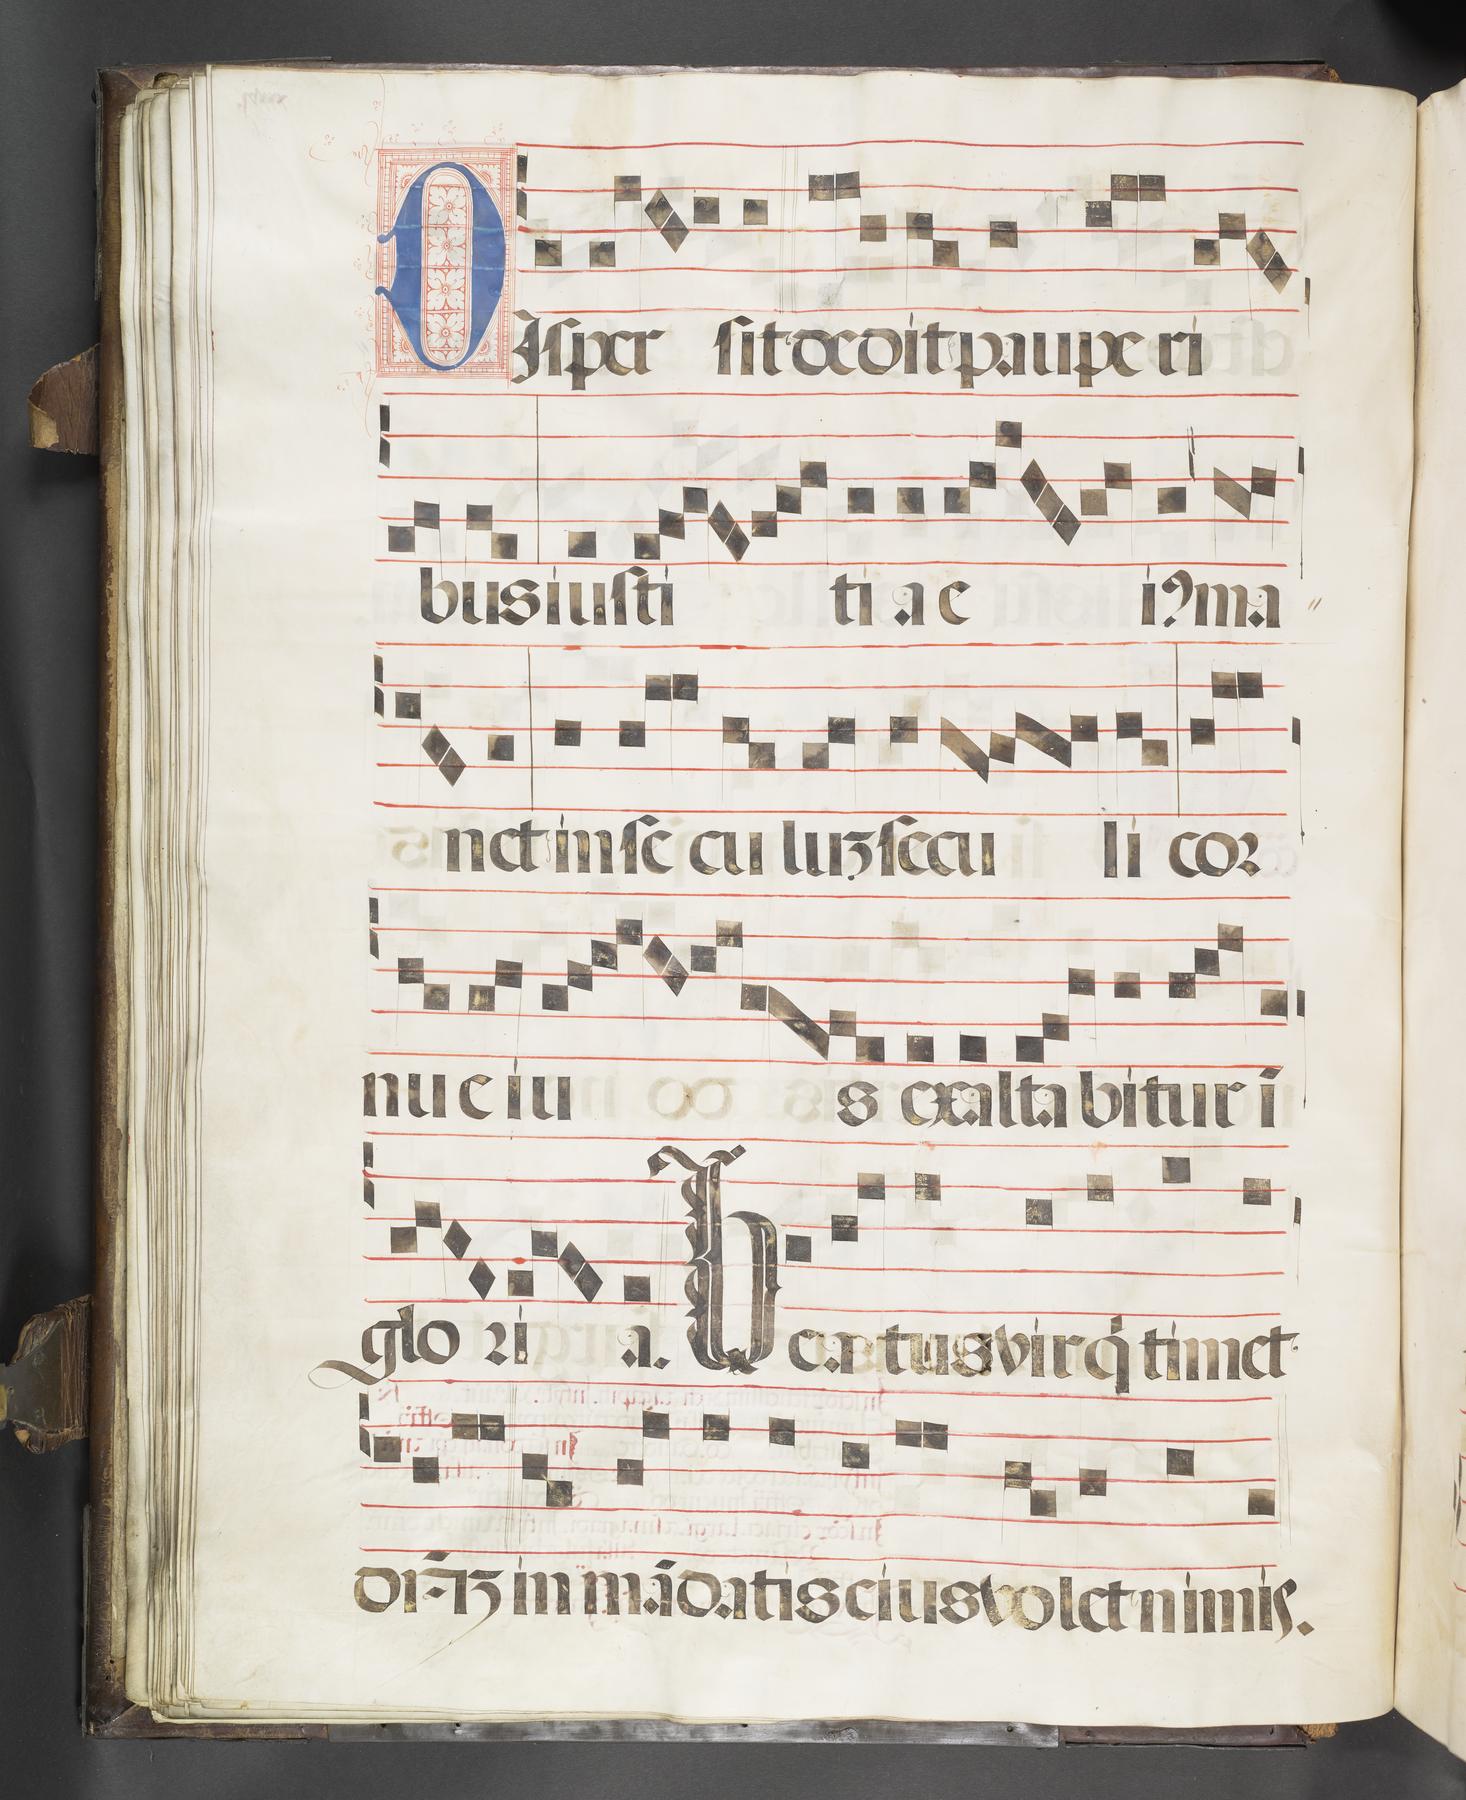 DIsper sit dedit paupe ri
bus iusti ti a e i? ma
net in se cu luʒ secu li cor
nu e iu s exalta bitur ī
glo ri a. Beatus vir q̄ timet
dn̄ʒ in mādatis eius volet nimis.